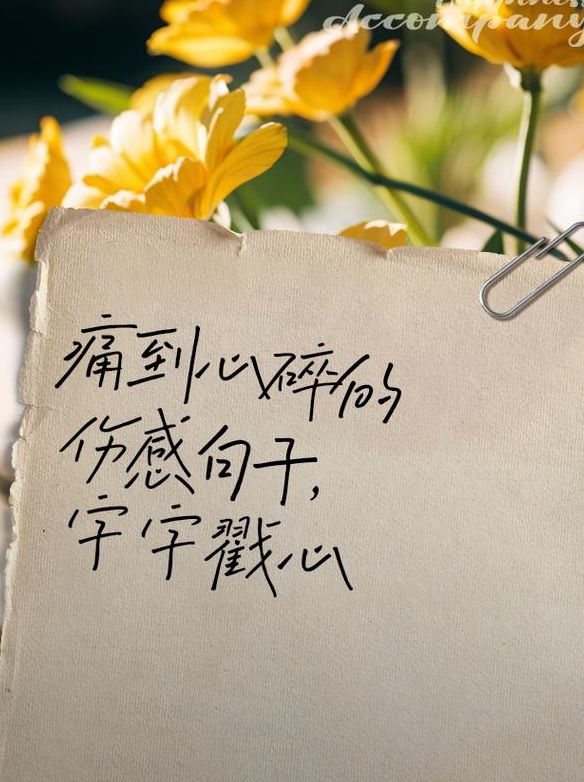 Happiness
Accompany
痛到心碎的
伤感句子，
字字戳心